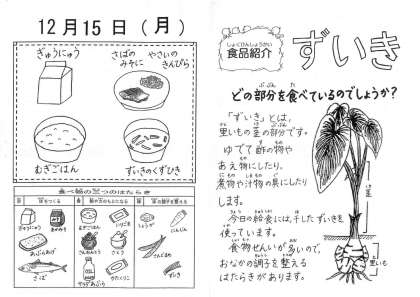 12月15日(月)
ぎゅうにゅう
さばの
みそに
やさいの
きんぴら
むぎごはん
ずいきのくずひき
食べ物の三つのはたらき
ぎゅうにゅう
あぶらあげ
さば
むぎごはん
さとう
しょうが
にんじん
さんどまめ
ずいき
しょくひんしょうかい
食品紹介
ずいき
どの部分を食べているのでしょうか?
「ずいき」とは、
里いもの茎の部分です。
ゆでて酢の物や
あえ物にしたり、
煮物や汁物の具にしたり
します。
今日の給食には、干したずいきを
使っています。
食物せんいが多いので、
おなかの調子を整える
はたらきがあります。
茎
里いも